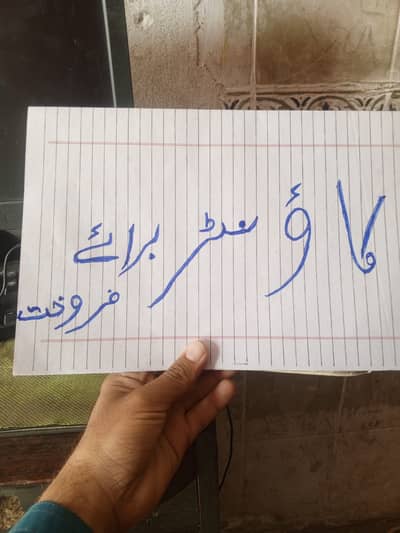 کاؤنٹر برائے
فروخت